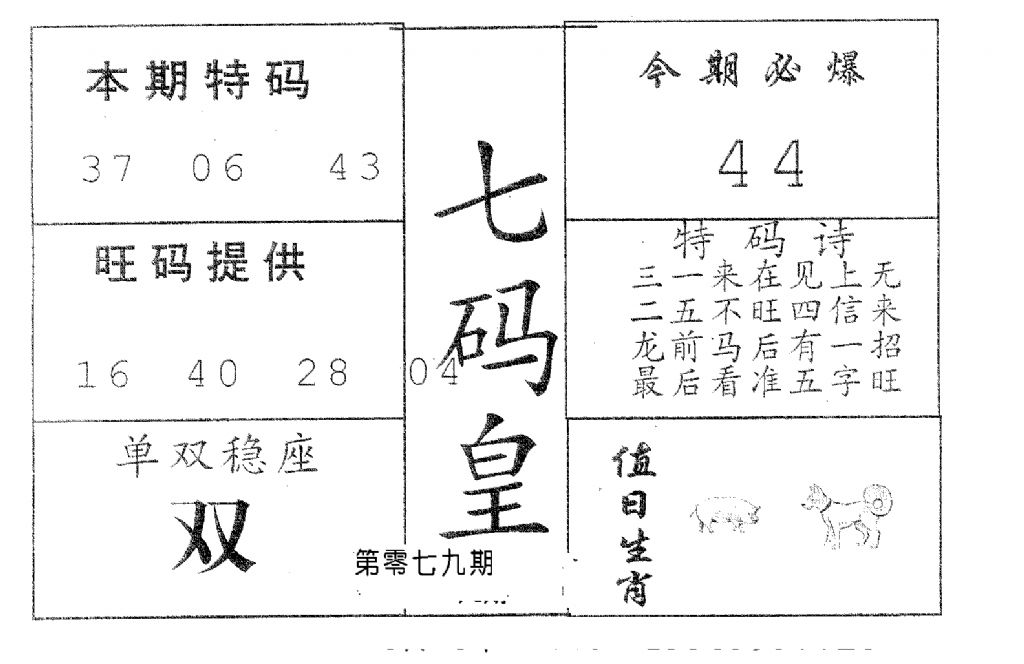 本期特码
37 06 43
旺码提供
16 40 28 04
单双稳座
双
七码皇
第零七九期
今期必爆
44
特码诗
三一来在见上无
二五不旺四信来
龙前马后有一招
最后看准五字旺
值日生肖